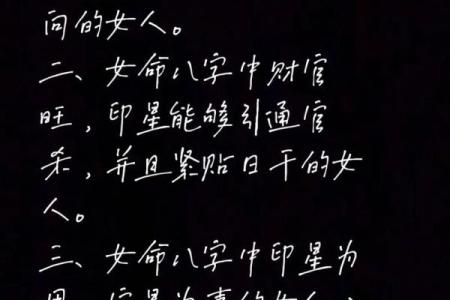 向的女人。
二、女命八字中财官
旺，印星能够引通官
杀，并且紧贴日干的女
人。
三、女命八字中印星为